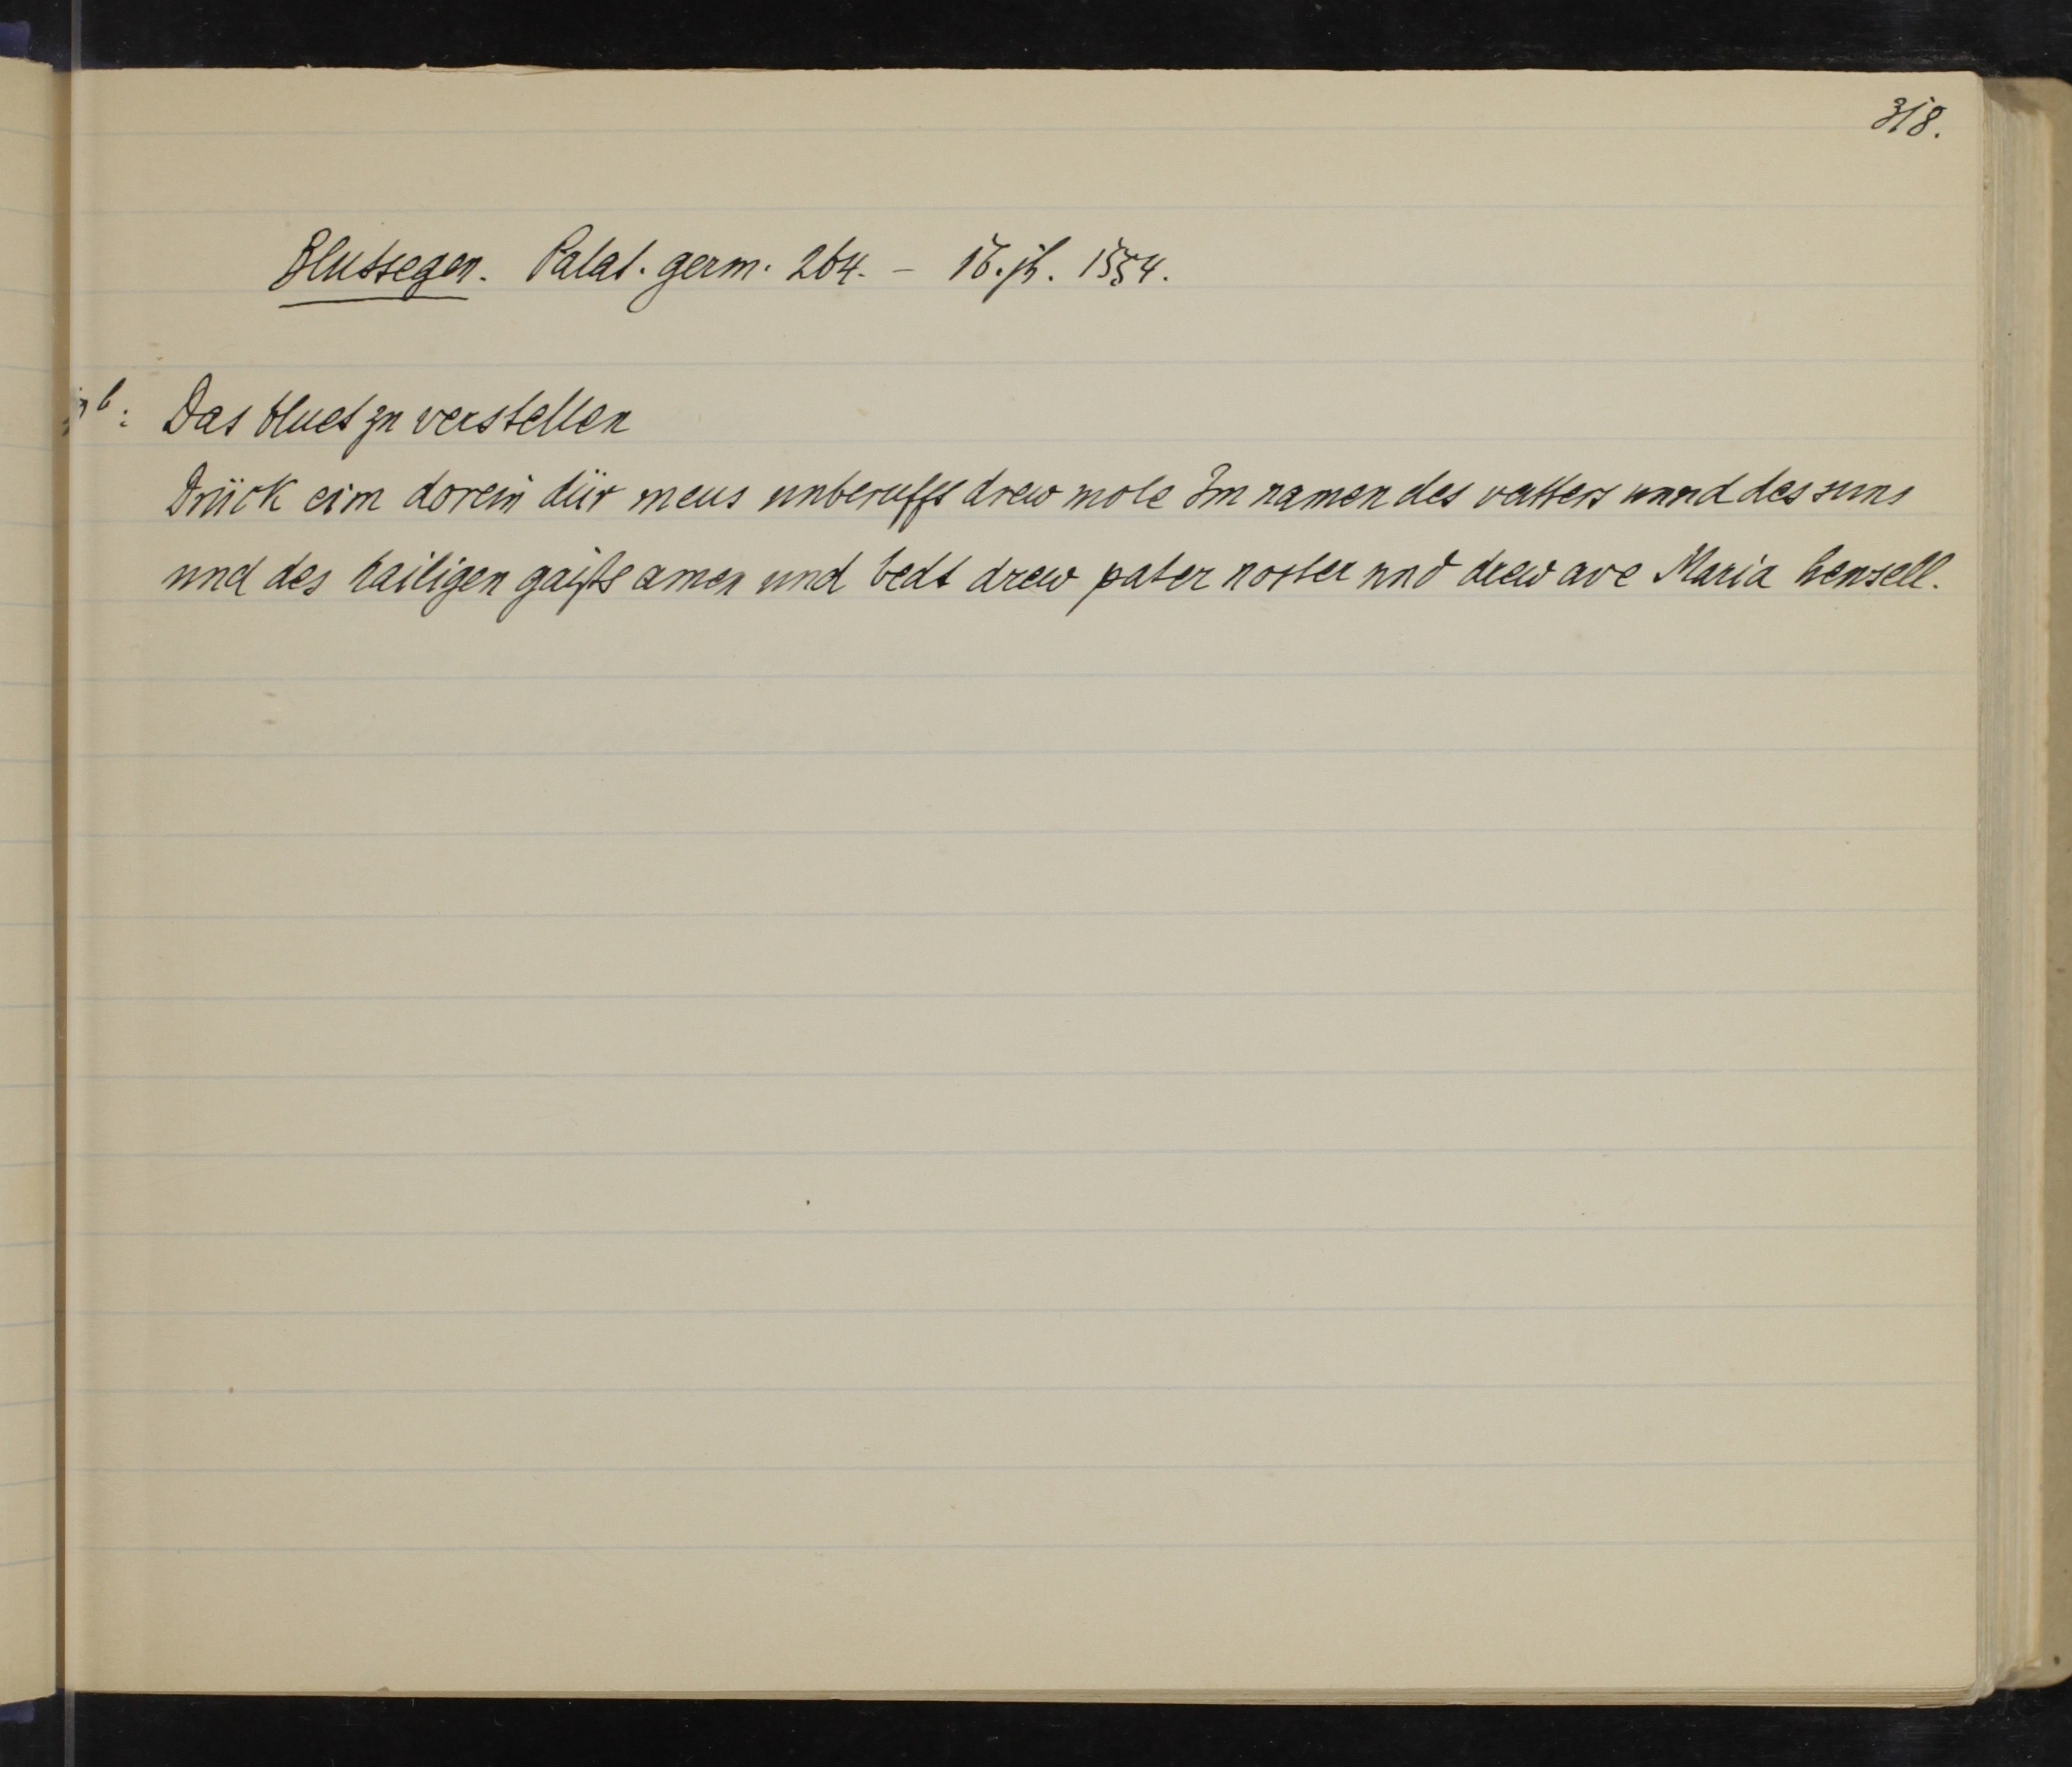 318.
Blutsegen. Palat. germ. 264. – 16. jh. 1554.
b: Das bluet zu verstellen
Drück eim dorein dür meus unberufft drew mole Im namen des vatters unnd des suns
und des hailigen gaists amen und bedt drew pater noster und drew ave Maria hensell.